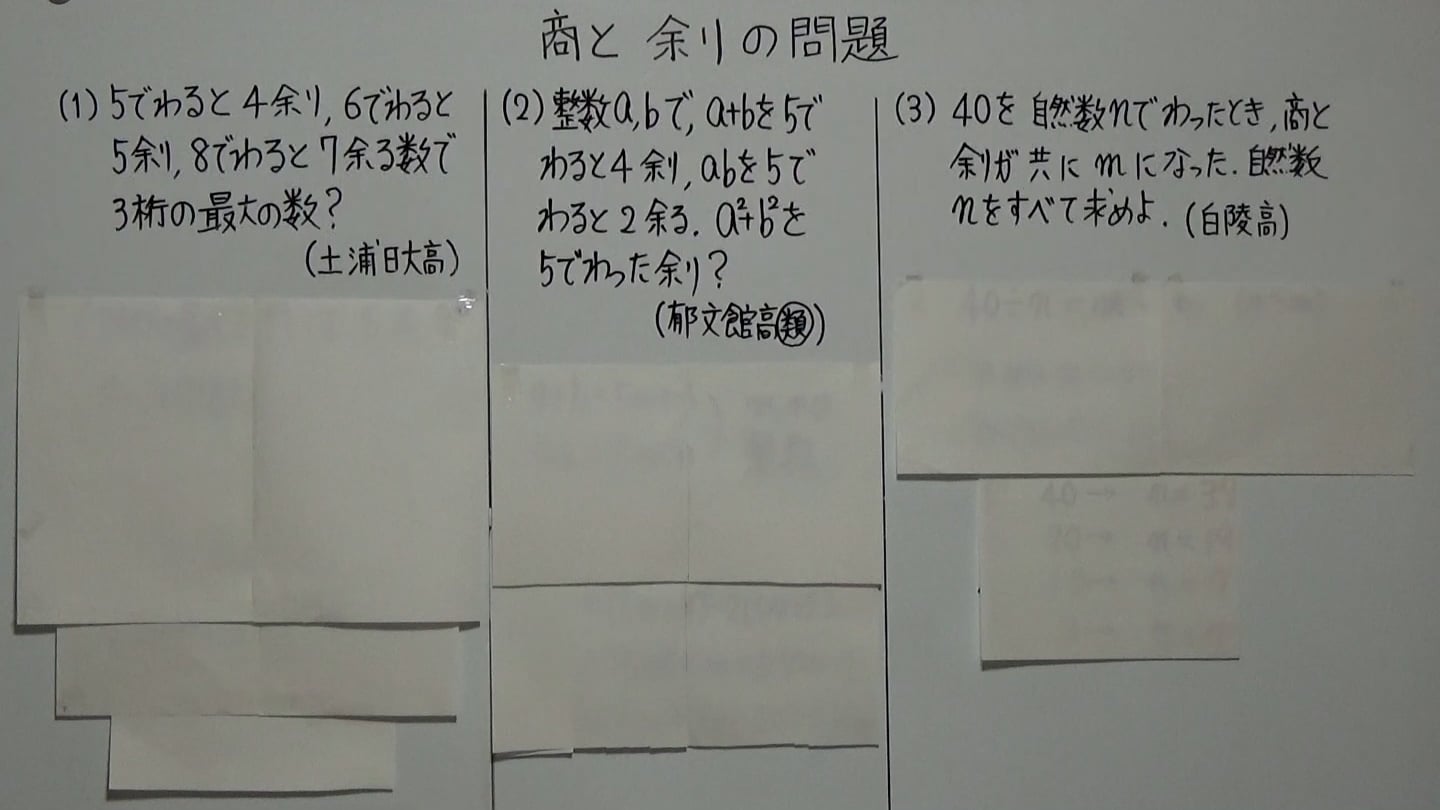 商と余りの問題
(1) 5でわると4余り,6でわると
5余り,8でわると7余る数で
3桁の最大の数?
(土浦日大高)
(2) 整数a,bで,a+bを5で
わると4余り,abを5で
わると2余る.a²+b²を
5でわった余り?
(郁文館高類)
(3) 40を自然数nでわったとき,商と
余りが共にmになった.自然数
nをすべて求めよ.(白陵高)